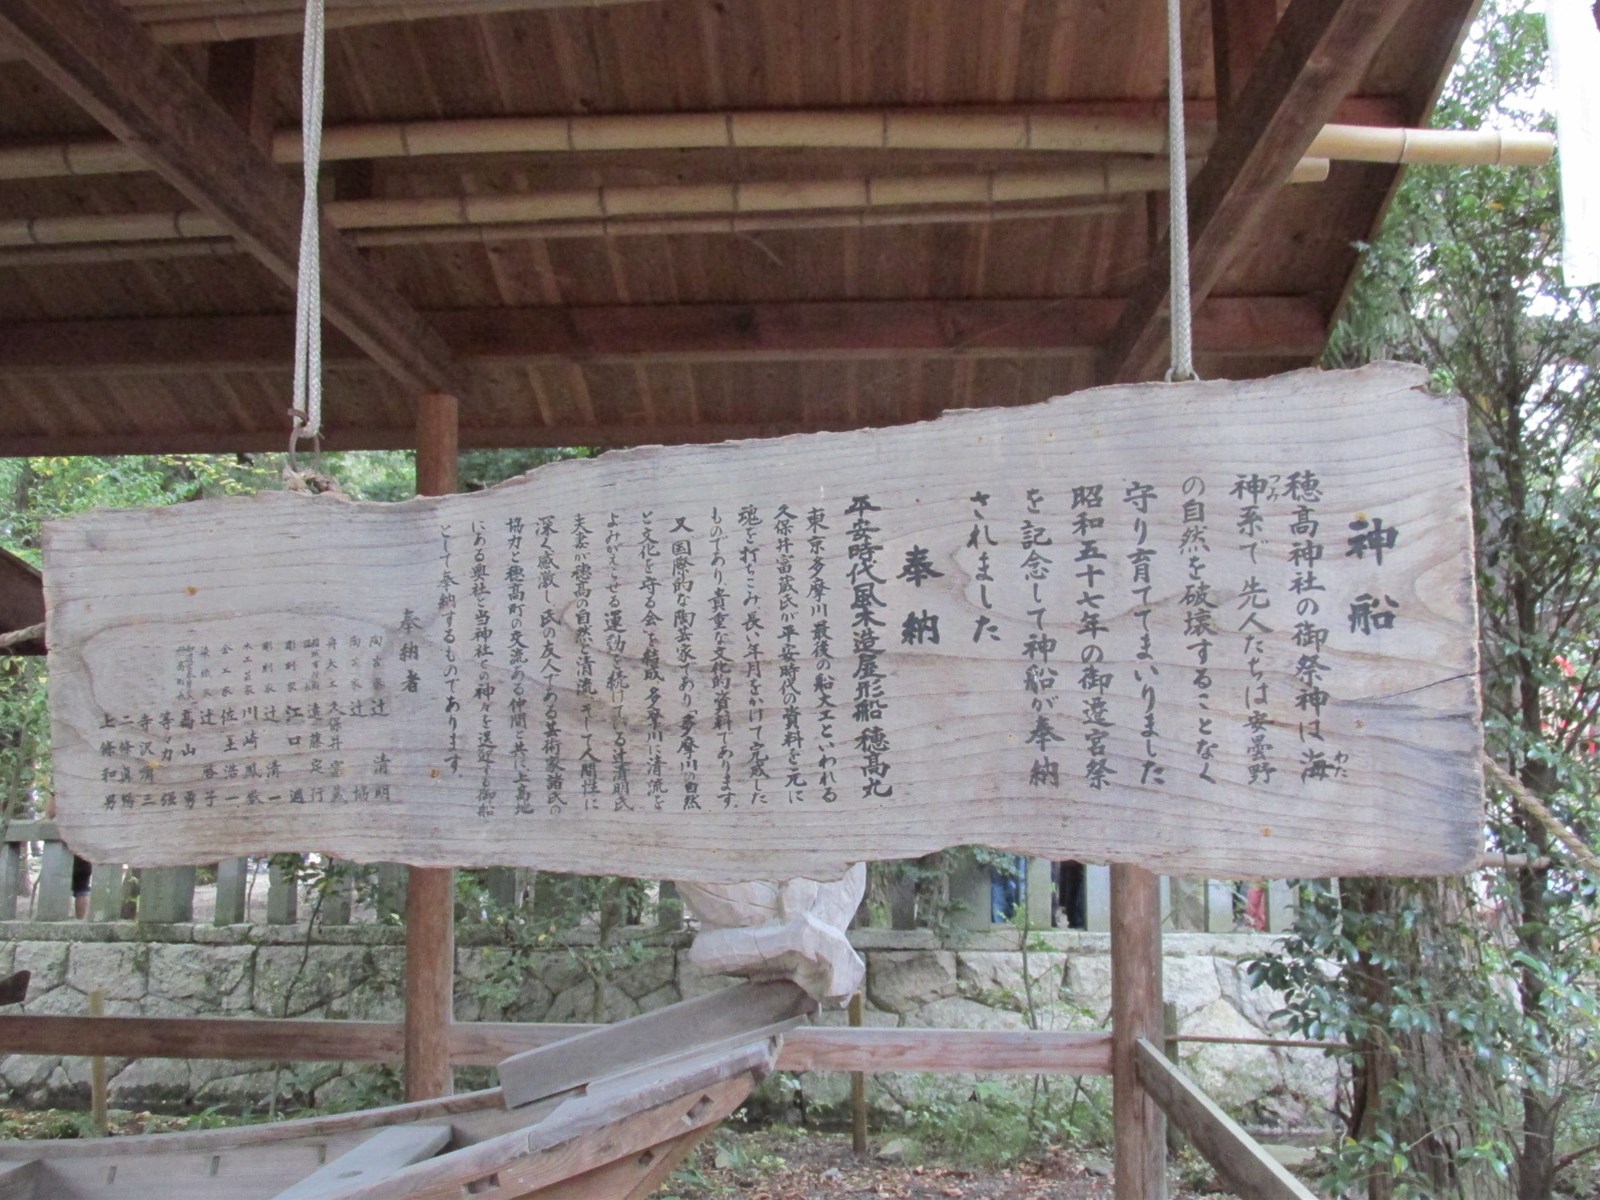 神船
穂高神社の御祭神は海
わた
神系で先人たちは安曇野
つみ
の自然を破壊することなく
守り育ててまいりました
昭和五十七年の御遷宮祭
を記念して神船が奉納
されました
奉納
平安時代風木造屋形船穂高丸
東京多摩川最後の船大工といわれる
久保井富蔵氏が平安時代の資料を元に
魂を打ちこみ長い年月をかけて完成した
ものであり貴重な文化的資料であります。
又、国際的な陶芸家であり、「多摩川の自然
と文化を守る会」を結成、多摩川に清流を
よみがえらせる運動を続けている辻清明氏
夫妻が穂高の自然と清流、そして人間性に
深く感激し、氏の友人である芸術家諸氏の
協力と穂高町の交流ある仲間と共に、上高地
にある奥社と当神社との神々を送迎する御船
として奉納するものであります。
奉納者
陶芸家 辻清明
陶芸家 辻協
舟大工 久保井富蔵
遠藤定行
彫刻家 江口週
彫刻家 辻清一
木工芸家 川崎鳳嶽
金工家 佐王浩一
染織家 辻啓子
高山勇
等々力強
寺沢甫三
二條眞陽
上條和男